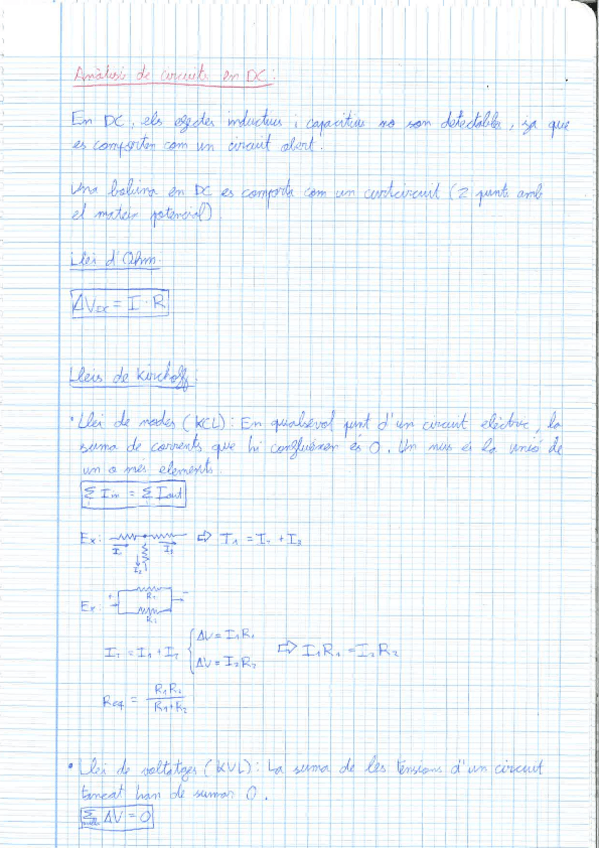 Anàlisis de circuits en DC:
En DC, els efectes inductius i capacitius no son detectables, ja que
es comporten com un circuit obert.
Una bobina en DC es comporta com un curtcircuit (2 punts amb
el mateix potencial)
Llei d'Ohm
ΔV_DC = I · R
Lleis de Kirchoff:
• Llei de nodes (KCL): En qualsevol punt d'un circuit elèctric, la
suma de corrents que hi conflueixen és 0. Un nus és la unió de
un o mes elements.
Σ I in = Σ I out
Ex: ⇨ I₁ = I₂ + I₃
Ex: + R₁ −
R₂
ΔV = I₁R₁
I_T = I₁ + I₂ ⇨ I₁R₁ = I₂R₂
ΔV = I₂R₂
R_eq = R₁R₂ / R₁+R₂
• Llei de voltatges (KVL): La suma de les tensions d'un circuit
tancat han de sumar 0.
Σ ΔV = 0